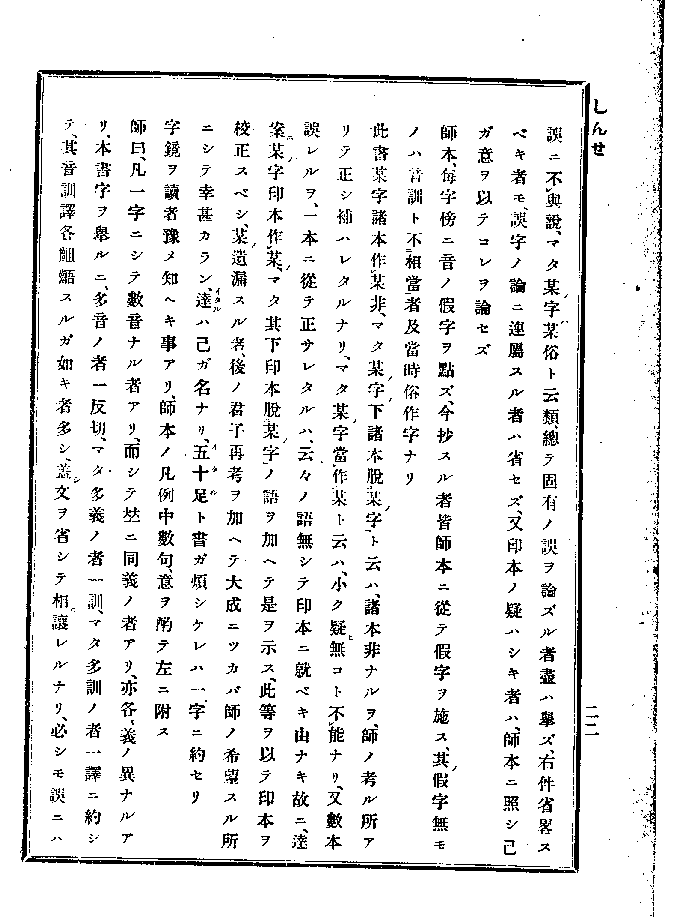 しんせ
誤ニ不與說、マタ某字某俗ト云類總テ固有ノ誤ヲ論ズル者盡ハ擧ズ、右件省畧ス
ベキ者モ、誤字ノ論ニ連屬スル者ハ省セズ、又印本ノ疑ハシキ者ハ、師本ニ照シ己
ガ意ヲ以テコレヲ論セズ
師本、每字傍ニ音ノ假字ヲ點ズ、今抄スル者皆師本ニ從テ假字ヲ施ス、其假字無モ
ノハ音訓ト不相當者及當時俗作字ナリ
此書某字諸本作某非、マタ某字下諸本脫某字ト云ハ、諸本非ナルヲ、師ノ考ル所ア
リテ正シ補ハレタルナリ、マタ某字當作某ト云ハ、小ク疑無コト不能ナリ、又數本
誤レルヲ、一本ニ從テ正サレタルハ、云々ノ語無シテ印本ニ就ベキ由ナキ故ニ、達
案某字印本作某、マタ其下印本脫某字ノ語ヲ加ヘテ是ヲ示ス、此等ヲ以テ印本ヲ
校正スベシ、某遺漏スル者、後ノ君子再考ヲ加ヘテ大成ニツカバ師ノ希望スル所
ニシテ幸甚カラン、達イタルハ己ガ名ナリ、五十足イタルト書ガ煩シケレハ一字ニ約セリ
字鏡ヲ讀者豫メ知ヘキ事アリ、師本ノ凡例中數句、意ヲ酌テ左ニ附ス
師曰、凡一字ニシテ數音ナル者アリ、而シテ玆ニ同義ノ者アリ、亦各〻義ノ異ナルア
リ、本書字ヲ擧ルニ、多音ノ者一反切、マタ多義ノ者一訓、マタ多訓ノ者一譯ニ約シ
テ、其音訓譯各齟齬スルガ如キ者多シ、蓋文ヲ省シテ相讓レルナリ、必シモ誤ニハ
二二